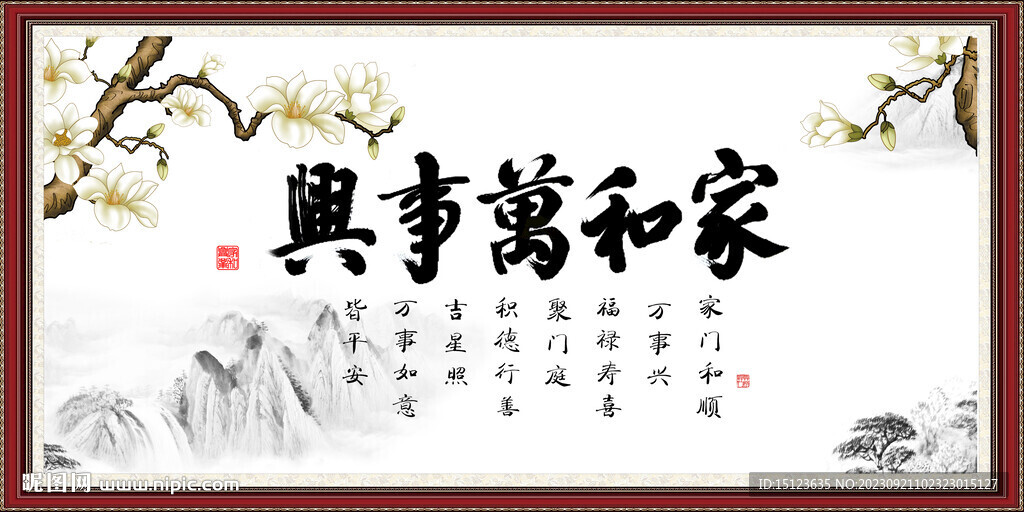 家和萬事興
家门和顺
万事兴
福禄寿喜
聚门庭
积德行善
吉星照
万事如意
皆平安
昵图网 www.nipic.com
ID:15123635 NO:20230921102323015127